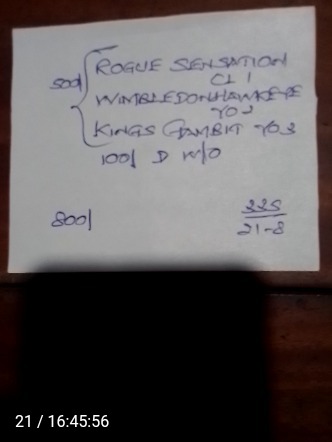 ROGUE SENSATION
CL 1
500/
WIMBLEDONHAWKEYE
YO 2
KINGS GAMBIT YO 3
100/ D W/O
800/
225
21-8
21 / 16:45:56